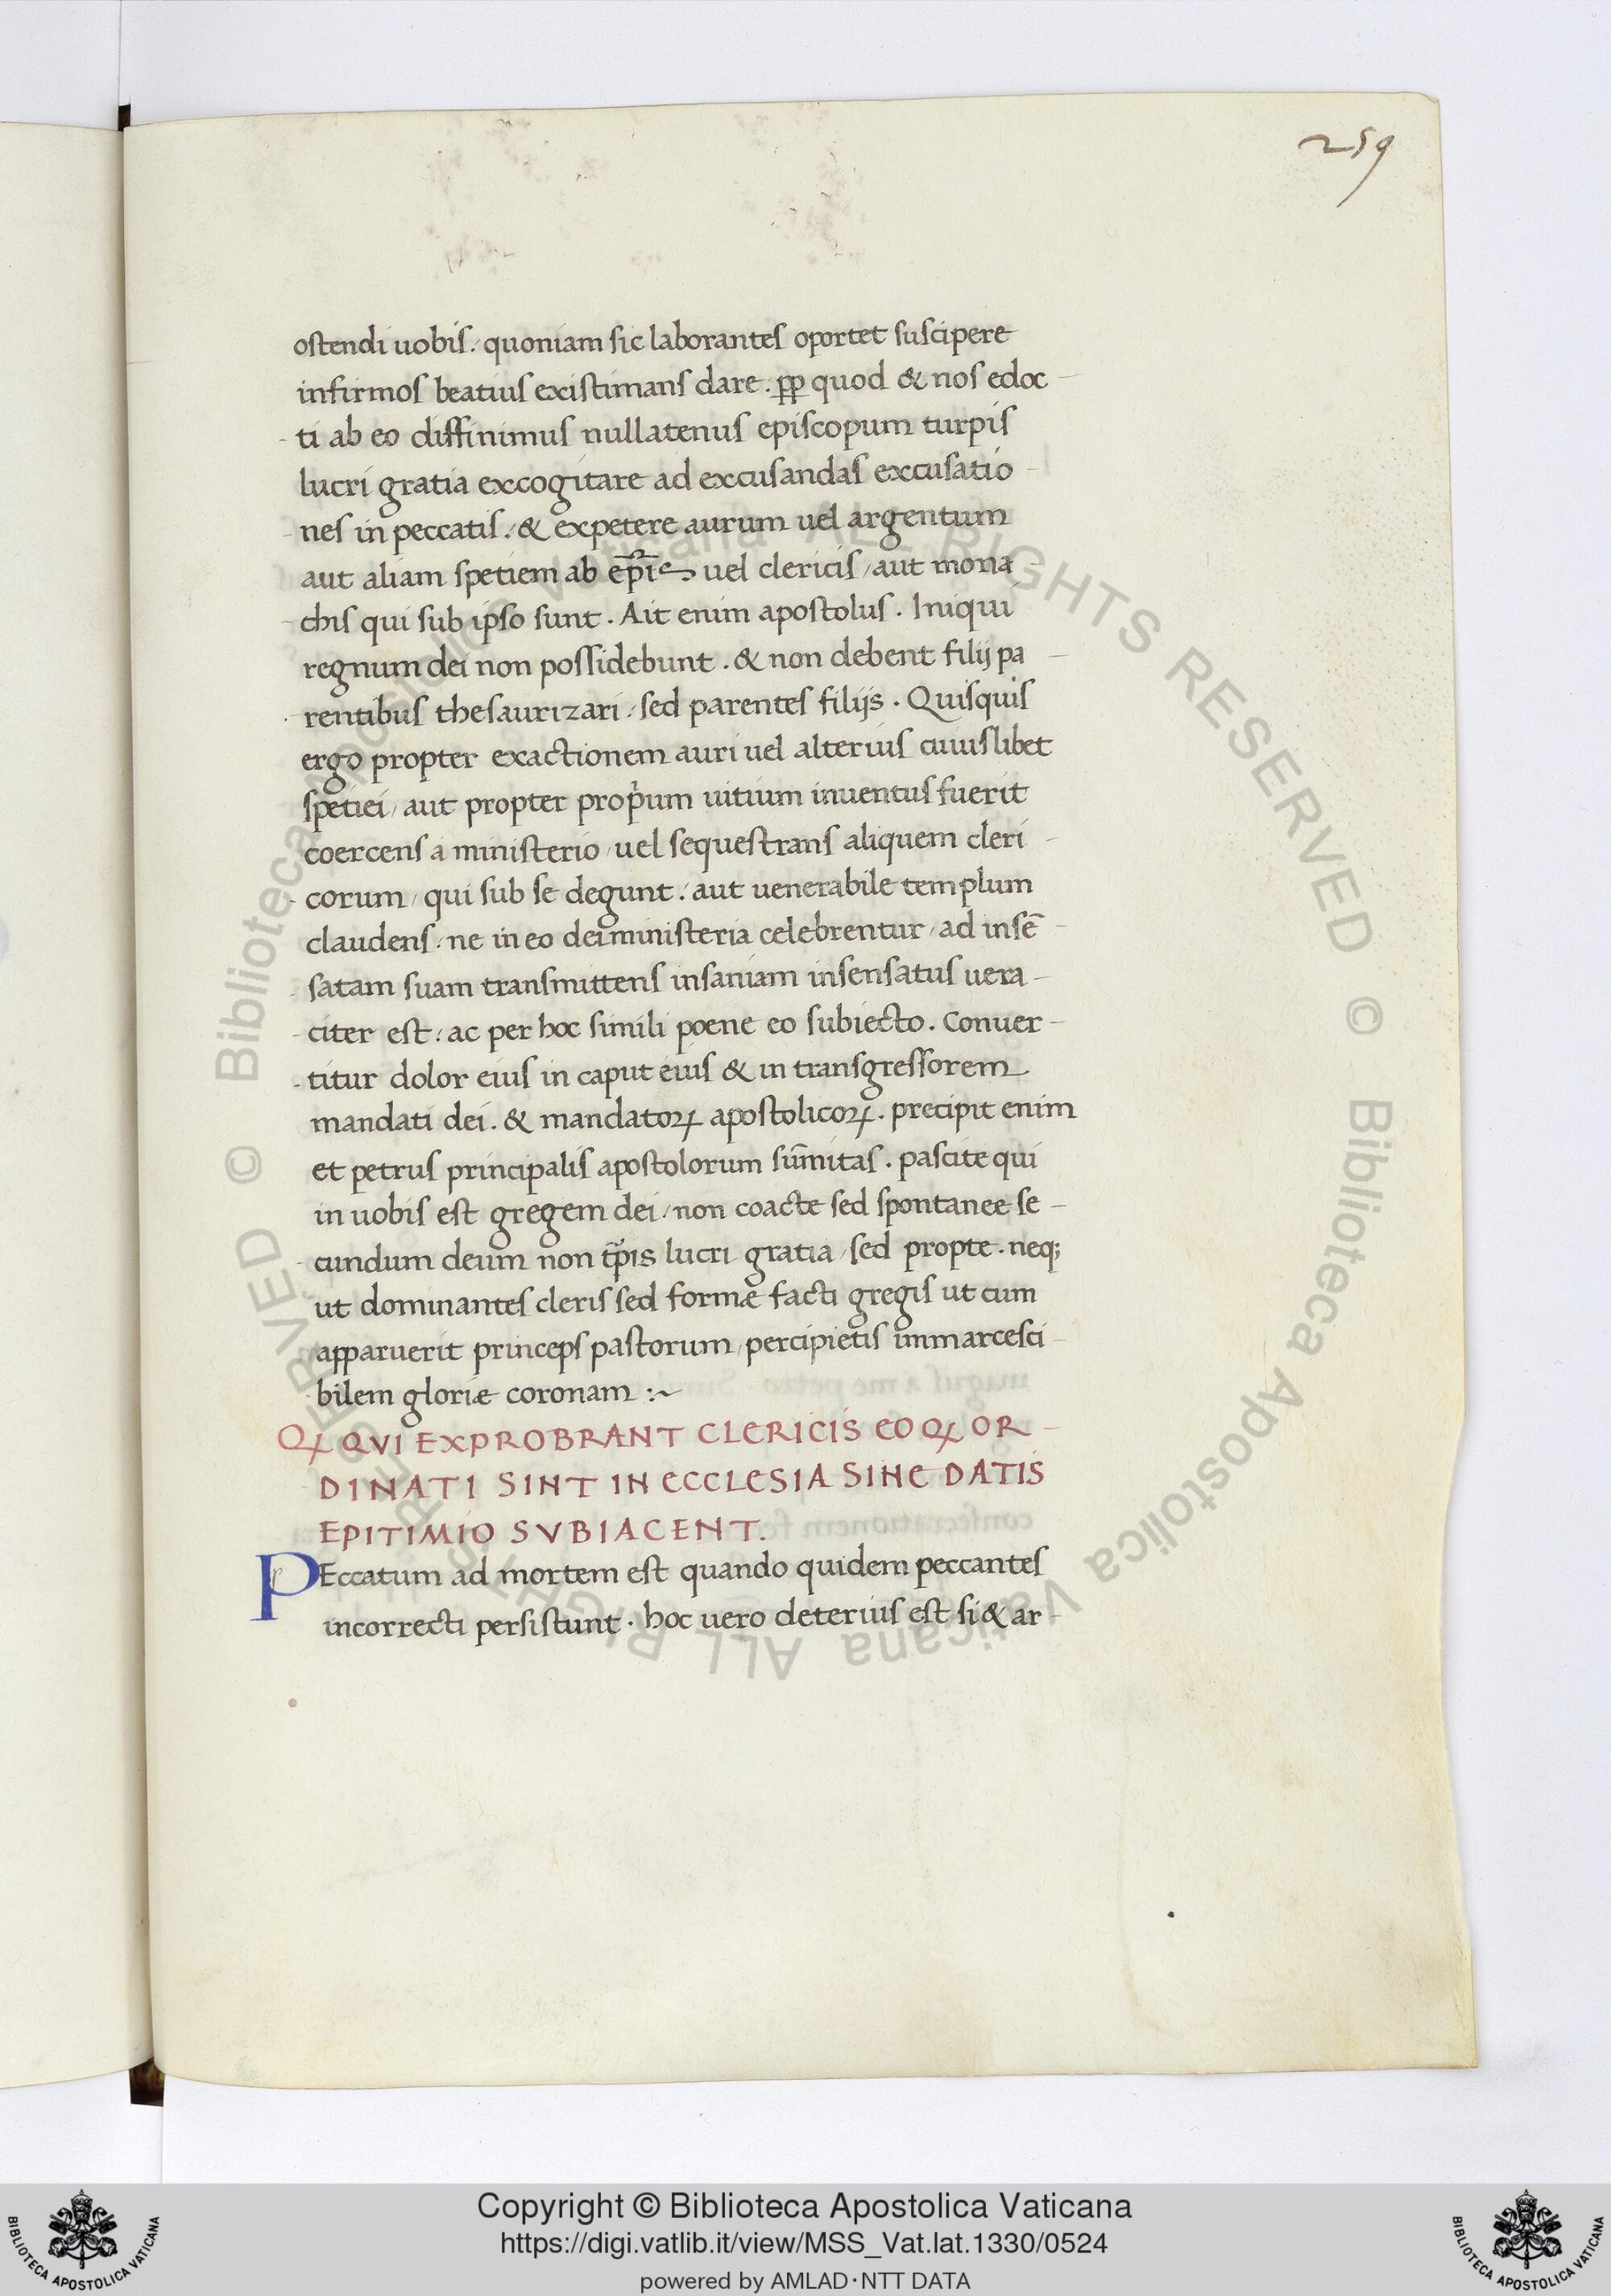 259
ostendi uobis. quoniam sic laborantes oportet suscipere
infirmos beatius existimans dare. ꝓp quod & nos edoc
ti ab eo diffinimus nullatenus episcopum turpis
lucri gratia excogitare ad excusandas excusatio
nes in peccatis. & expetere aurum uel argentum
aut aliam spetiem ab uel clericis / aut mona
chis qui sub ipso sunt. Ait enim apostolus. Iniqui
regnum dei non possidebunt. & non debent filij pa
rentibus thesaurizari. sed parentes filijs. Quisquis
ergo propter exactionem auri uel alterius cuiuslibet
spetiei / aut propter proṗum uitium inuentus fuerit
coercens a ministerio / uel sequestrans aliquem cleri
corum / qui sub se degunt. aut uenerabile templum
claudens. ne in eo dei ministeria celebrentur / ad insē
satam suam transmittens insaniam insensatus uera
citer est. ac per hoc simili poene eo subiecto. Conuer
titur dolor eius in caput eius & in transgressorem
mandati dei. & mandatoꝝ apostolicoꝝ. precipit enim
et petrus principalis apostolorum sūmitas. pascite qui
in uobis est gregem dei / non coacte sed spontanee se
cundum deum non tp̄is lucri gratia / sed propte. neq;
ut dominantes cleris sed formæ facti gregis ut cum
apparuerit princeps pastorum / percipietis immarcesci
bilem gloriæ coronam :~
Qꝝ QVI EXPROBRANT CLERICIS EO Qꝝ OR
DINATI SINT IN ECCLESIA SINE DATIS
EPITIMIO SVBIACENT.
PEccatum ad mortem est quando quidem peccantes
incorrecti persistunt. hoc uero deterius est si & ar
© Biblioteca Apostolica Vaticana ALL RIGHTS RESERVED © Biblioteca Apostolica Vaticana ALL RIGHTS RESERVED
BIBLIOTECA APOSTOLICA VATICANA
Copyright © Biblioteca Apostolica Vaticana
https://digi.vatlib.it/view/MSS_Vat.lat.1330/0524
powered by AMLAD·NTT DATA
BIBLIOTECA APOSTOLICA VATICANA